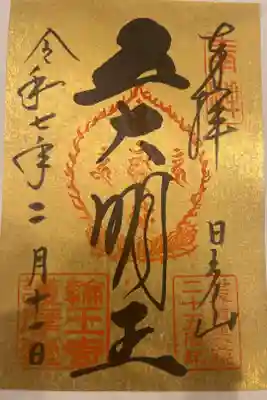 奉拝
日光山
五大明王
輪王寺
護摩堂
令和七年二月十一日